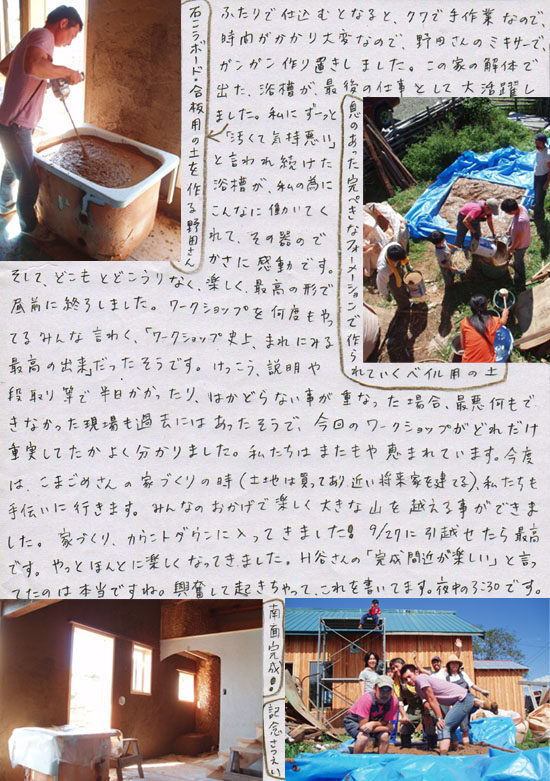 ふたりで仕込むとなると、クワで手作業なので、
時間がかかり大変なので、野田さんのミキサーで、
ガンガン作り置きしました。この家の解体で
出た、浴槽が、最後の仕事として大活躍し
ました。私にずーっと
「汚くて気持悪い」
と言われ続けた
浴槽が、私の為に
こんなに働いてく
れて、その器ので
かさに感動です。
石こうボード・合板用の土を作る野田さん
息のあった完ぺきなフォーメーションで作ら
れていくベイル用の土
そして、どこもとどこうりなく、楽しく、最高の形で
昼前に終了しました。ワークショップを何度もやっ
てるみんな言わく、「ワークショップ史上、まれにみる
最高の出来」だったそうです。けっこう、説明や
段取り等で半日かかったり、はかどらない事が重なった場合、最悪何もで
きなかった現場も過去にはあったそうで、今回のワークショップがどれだけ
充実してたかよく分かりました。私たちはまたもや恵まれています。今度
は、こまごめさんの家づくりの時(土地は買ってあり、近い将来家を建てる)、私たちも
手伝いに行きます。みんなのおかげで楽しく大きな山を越える事ができま
した。家づくり、カウントダウンに入ってきました!9/27に引越せたら最高
です。やっとほんとに楽しくなってきました。H谷さんの「完成間近が楽しい」と言っ
てたのは本当ですね。興奮して起きちゃって、これを書いてます。夜中の3:30です。
南面完成!
記念さつえい